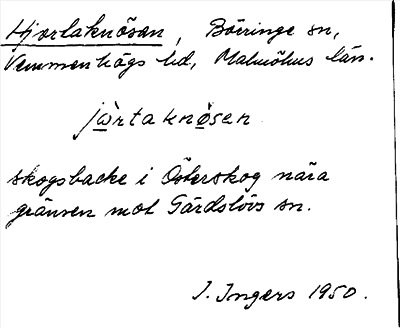 Hjortaknösen, Börringe sn,
Vemmenhögs hd, Malmöhus län.
jòrtaknøsen
skogsbacke i Österskog nära
gränsen mot Gärdslövs sn.
I. Ingers 1950.